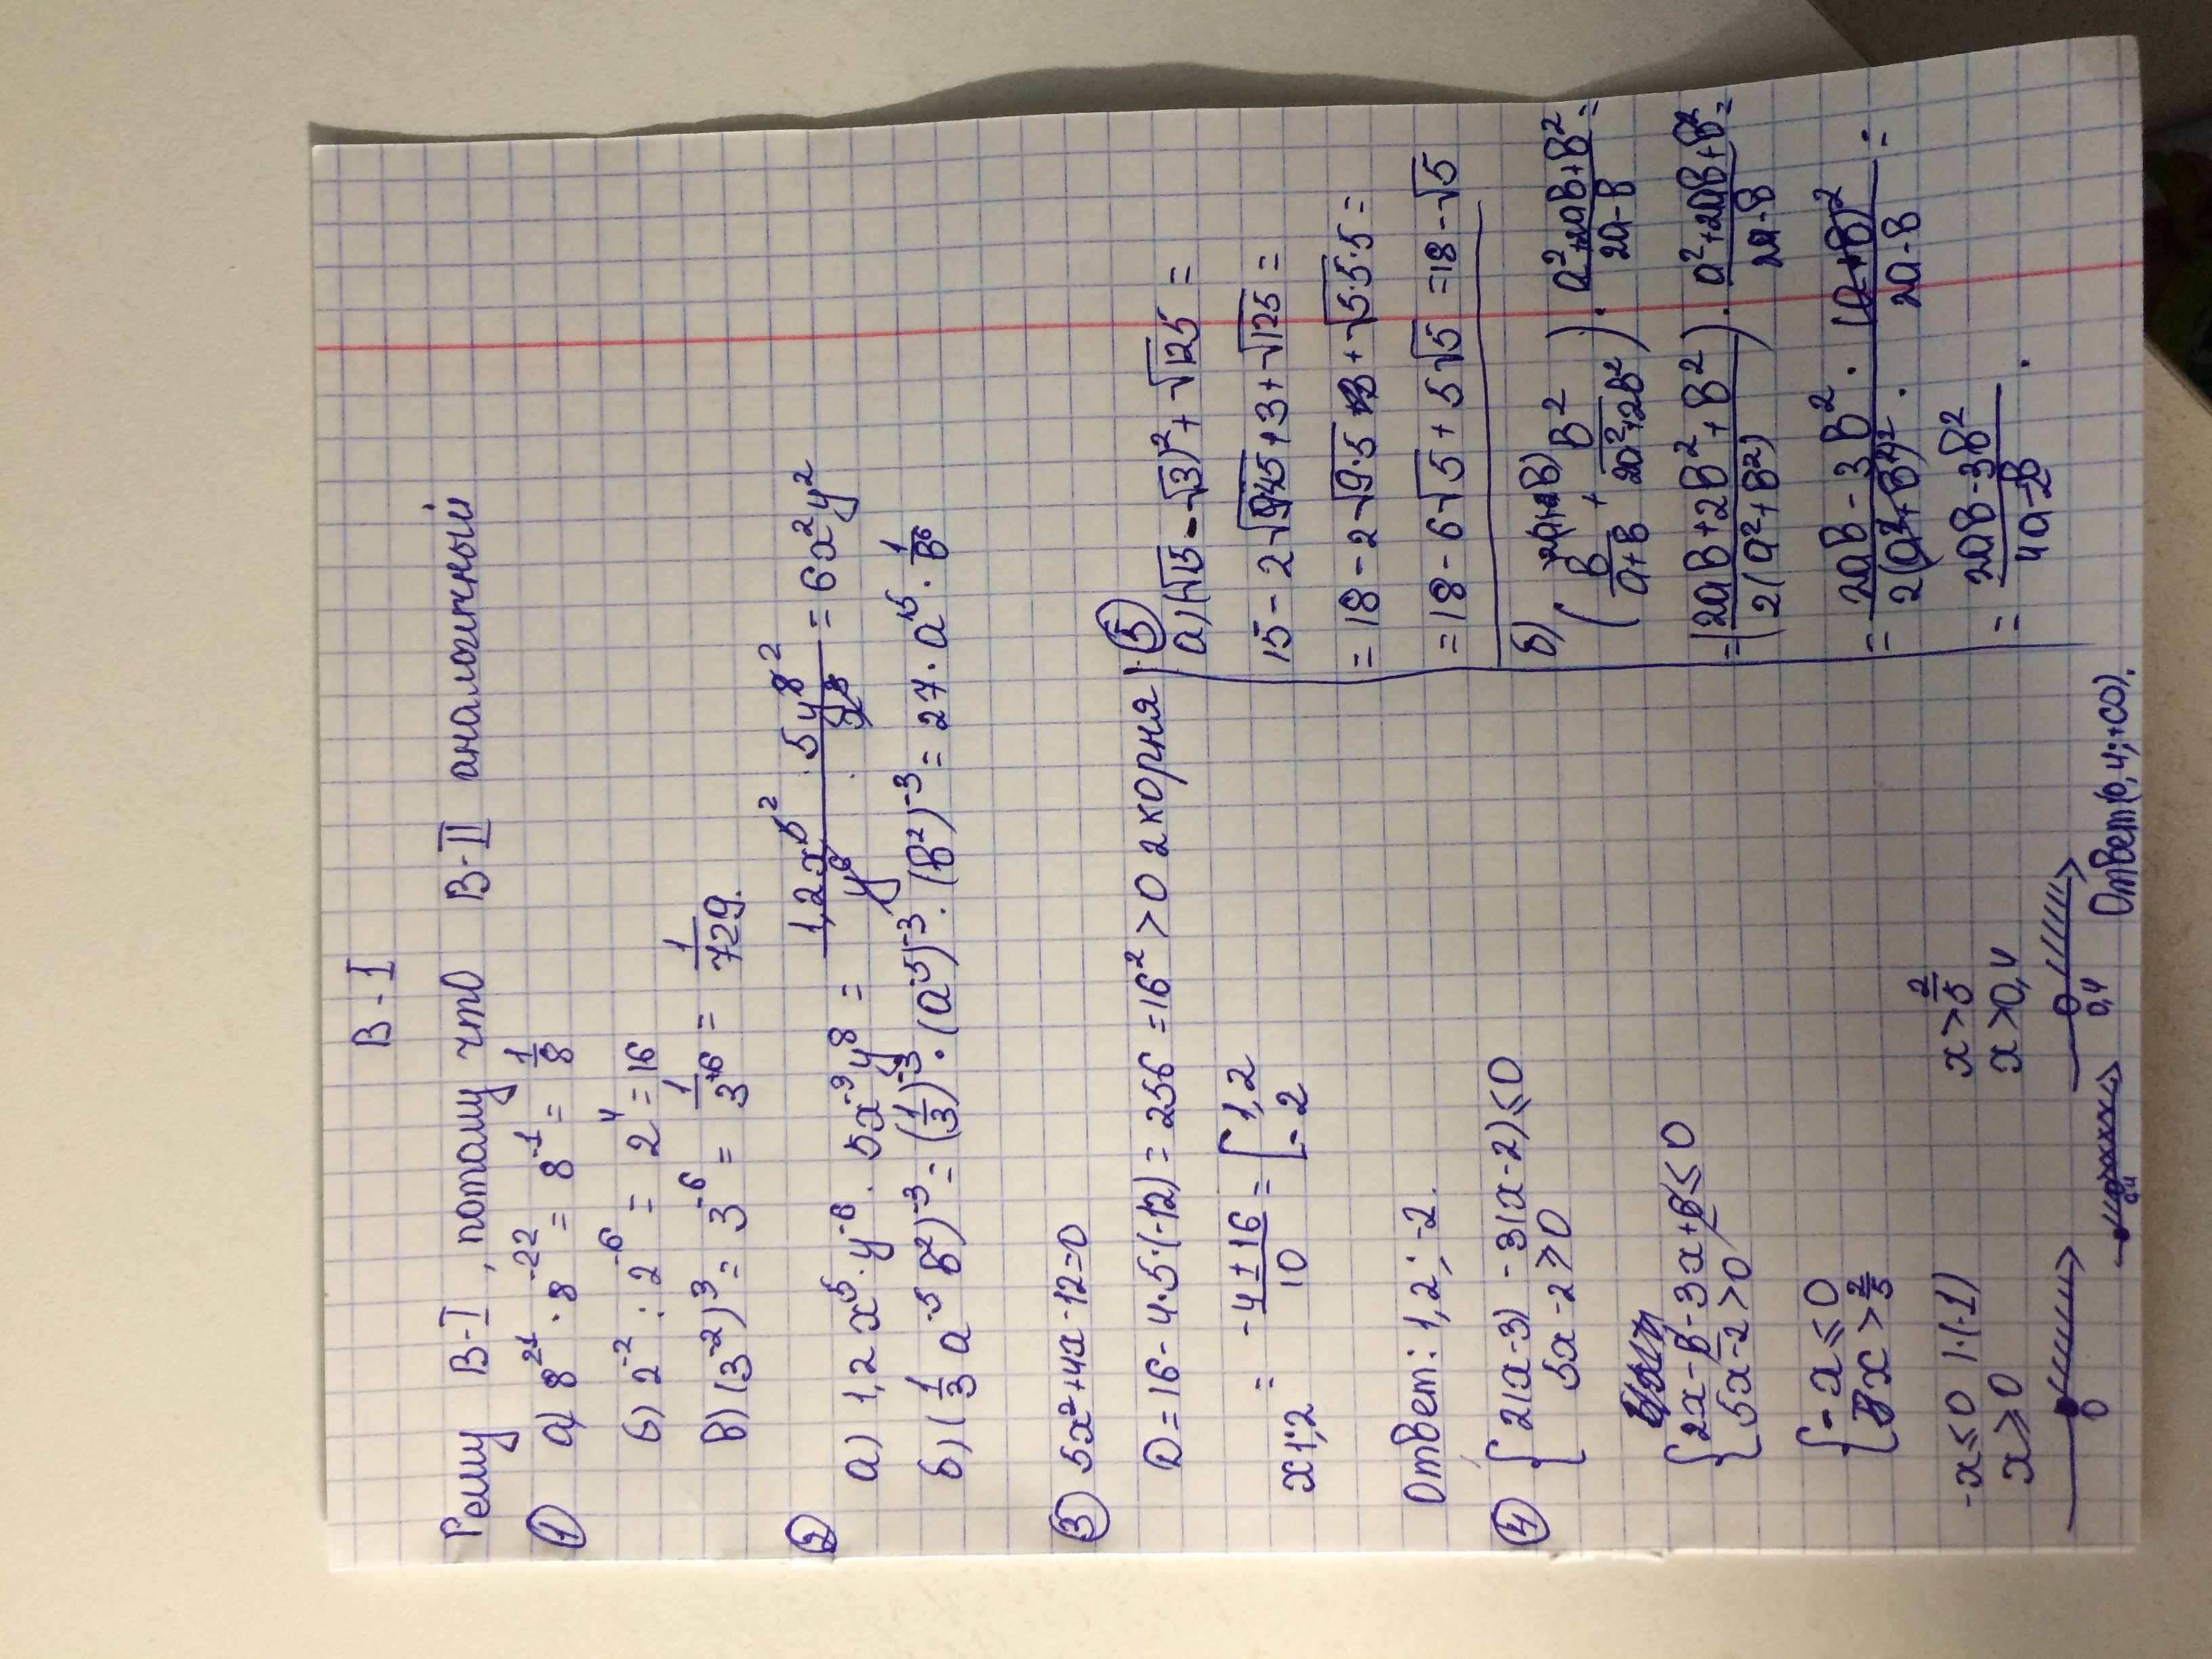 В-I
Решу В-I, потому что В-II аналогичный
① а) 8²¹ · 8⁻²² = 8⁻¹ = 1/8
б) 2⁻² : 2⁻⁶ = 2⁴ = 16
в) (3⁻²)³ = 3⁻⁶ = 1/3⁺⁶ = 1/729.
②
а) 1,2x⁵ · y⁻⁸ · 5x⁻³y⁸ = = 6x²y²
б) (1/3 a⁻⁵ в²)⁻³ = (1/3)⁻³ · (a⁻⁵)⁻³ · (в²)⁻³ = 27 · a¹⁵ · 1/в⁶
③ 5x²+4x-12=0
D = 16 - 4·5·(-12) = 256 = 16² > 0 2 корня
x1,2 = -4±16/10 = [1,2 -2
Ответ: 1,2; -2.
④ { 2(x-3) - 3(x-2) ≤ 0
5x-2 ≥ 0
{ 2x-6-3x+6 ≤ 0
5x-2 > 0
{ -x ≤ 0
x > 2/5
-x ≤ 0 |·(-1)
x ≥ 0
x > 2/5
x > 0,4
0
0,4
Ответ (0,4; +∞).
⑤
а) (√15 - √3)² + √125 =
15 - 2√45 + 3 + √125 =
= 18 - 2√9·5 + √5·5·5 =
= 18 - 6√5 + 5√5 = 18 - √5
б)
(в/a+в + в²/2a²+2в²) · a²+2aв+в²/2a-в =
= (2aв+2в²+в²/2(a²+в²)) · a²+2aв+в²/2a-в =
= 2aв-3в²/2(a+в)² · (a+в)²/2a-в =
= 2aв-3в²/4a-2в.